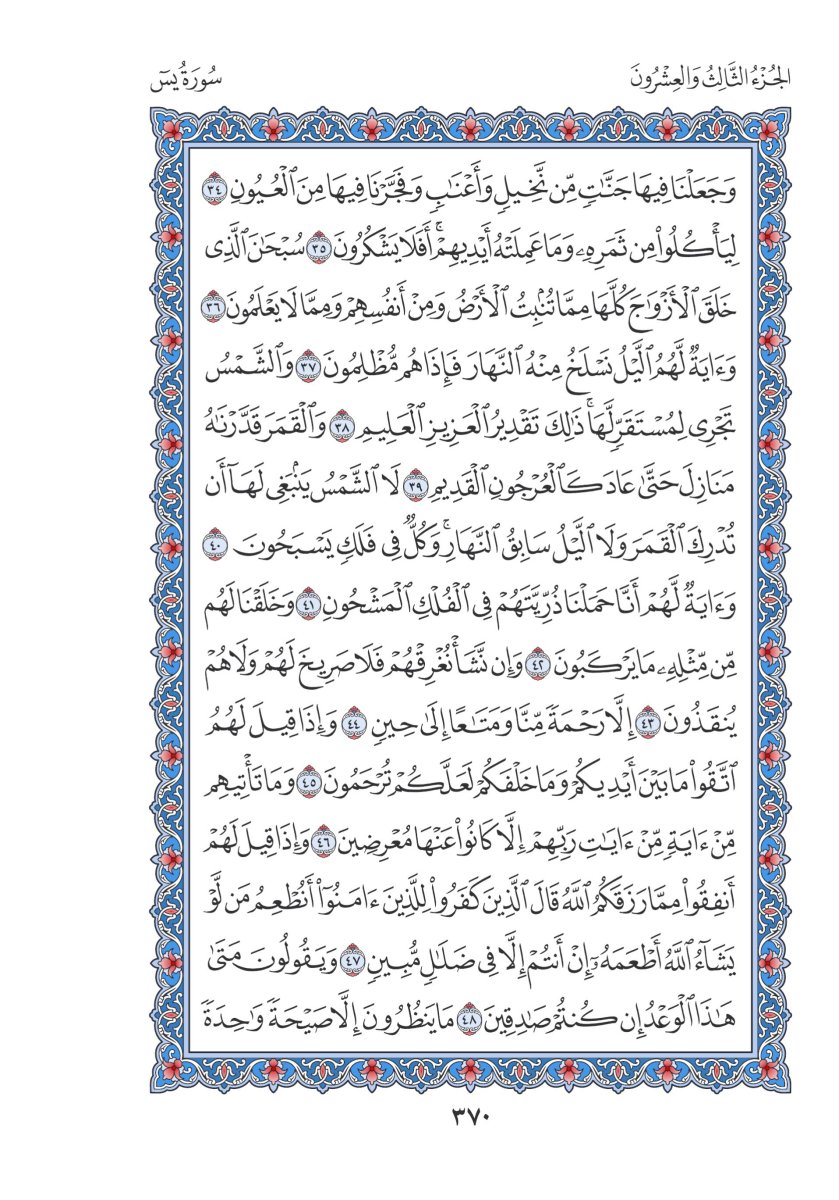 الجُزْءُ الثَّالِثُ وَالعِشْرُونَ
سُورَةُ يسٓ
وَجَعَلْنَا فِيهَا جَنَّٰتٍ مِّن نَّخِيلٍ وَأَعْنَٰبٍ وَفَجَّرْنَا فِيهَا مِنَ ٱلْعُيُونِ ٣٤
لِيَأْكُلُوا۟ مِن ثَمَرِهِۦ وَمَا عَمِلَتْهُ أَيْدِيهِمْ ۚ أَفَلَا يَشْكُرُونَ ٣٥ سُبْحَٰنَ ٱلَّذِى
خَلَقَ ٱلْأَزْوَٰجَ كُلَّهَا مِمَّا تُنۢبِتُ ٱلْأَرْضُ وَمِنْ أَنفُسِهِمْ وَمِمَّا لَا يَعْلَمُونَ ٣٦
وَءَايَةٌ لَّهُمُ ٱلَّيْلُ نَسْلَخُ مِنْهُ ٱلنَّهَارَ فَإِذَا هُم مُّظْلِمُونَ ٣٧ وَٱلشَّمْسُ
تَجْرِى لِمُسْتَقَرٍّ لَّهَا ۚ ذَٰلِكَ تَقْدِيرُ ٱلْعَزِيزِ ٱلْعَلِيمِ ٣٨ وَٱلْقَمَرَ قَدَّرْنَٰهُ
مَنَازِلَ حَتَّىٰ عَادَ كَٱلْعُرْجُونِ ٱلْقَدِيمِ ٣٩ لَا ٱلشَّمْسُ يَنۢبَغِى لَهَآ أَن
تُدْرِكَ ٱلْقَمَرَ وَلَا ٱلَّيْلُ سَابِقُ ٱلنَّهَارِ ۚ وَكُلٌّ فِى فَلَكٍ يَسْبَحُونَ ٤٠
وَءَايَةٌ لَّهُمْ أَنَّا حَمَلْنَا ذُرِّيَّتَهُمْ فِى ٱلْفُلْكِ ٱلْمَشْحُونِ ٤١ وَخَلَقْنَا لَهُم
مِّن مِّثْلِهِۦ مَا يَرْكَبُونَ ٤٢ وَإِن نَّشَأْ نُغْرِقْهُمْ فَلَا صَرِيخَ لَهُمْ وَلَا هُمْ
يُنقَذُونَ ٤٣ إِلَّا رَحْمَةً مِّنَّا وَمَتَٰعًا إِلَىٰ حِينٍ ٤٤ وَإِذَا قِيلَ لَهُمُ
ٱتَّقُوا۟ مَا بَيْنَ أَيْدِيكُمْ وَمَا خَلْفَكُمْ لَعَلَّكُمْ تُرْحَمُونَ ٤٥ وَمَا تَأْتِيهِم
مِّنْ ءَايَةٍ مِّنْ ءَايَٰتِ رَبِّهِمْ إِلَّا كَانُوا۟ عَنْهَا مُعْرِضِينَ ٤٦ وَإِذَا قِيلَ لَهُمْ
أَنفِقُوا۟ مِمَّا رَزَقَكُمُ ٱللَّهُ قَالَ ٱلَّذِينَ كَفَرُوا۟ لِلَّذِينَ ءَامَنُوٓا۟ أَنُطْعِمُ مَن لَّوْ
يَشَآءُ ٱللَّهُ أَطْعَمَهُۥٓ إِنْ أَنتُمْ إِلَّا فِى ضَلَٰلٍ مُّبِينٍ ٤٧ وَيَقُولُونَ مَتَىٰ
هَٰذَا ٱلْوَعْدُ إِن كُنتُمْ صَٰدِقِينَ ٤٨ مَا يَنظُرُونَ إِلَّا صَيْحَةً وَٰحِدَةً
٣٧٠